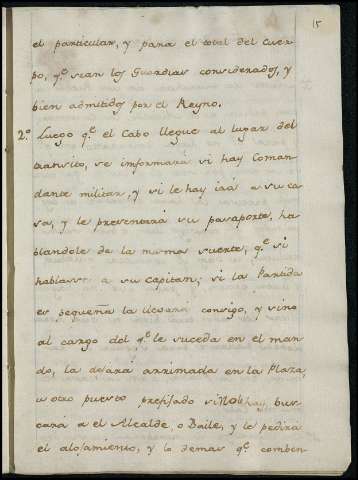 15
el particular, y para el total del Cuer-
po, q.e sean los Guardias considerados, y
bien admitidos por el Reyno.
2.o Luego q.e el Cabo llegue al lugar del
transito, se informará si hay Coman-
dante militar, y si le hay irá a su ca-
sa, y le presentará su pasaporte, ha-
blandole de la misma suerte, q.e si
hablase a su Capitan; si la Partida
es pequeña la llevará consigo, y sino
al cargo del q.e le suceda en el man-
do, la dejará arrimada en la Plaza,
u otro puesto prefijado si No le hay bus-
cará a el Alcalde, o Baile, y le pedirá
el alojamiento, y lo demas q.e comben-